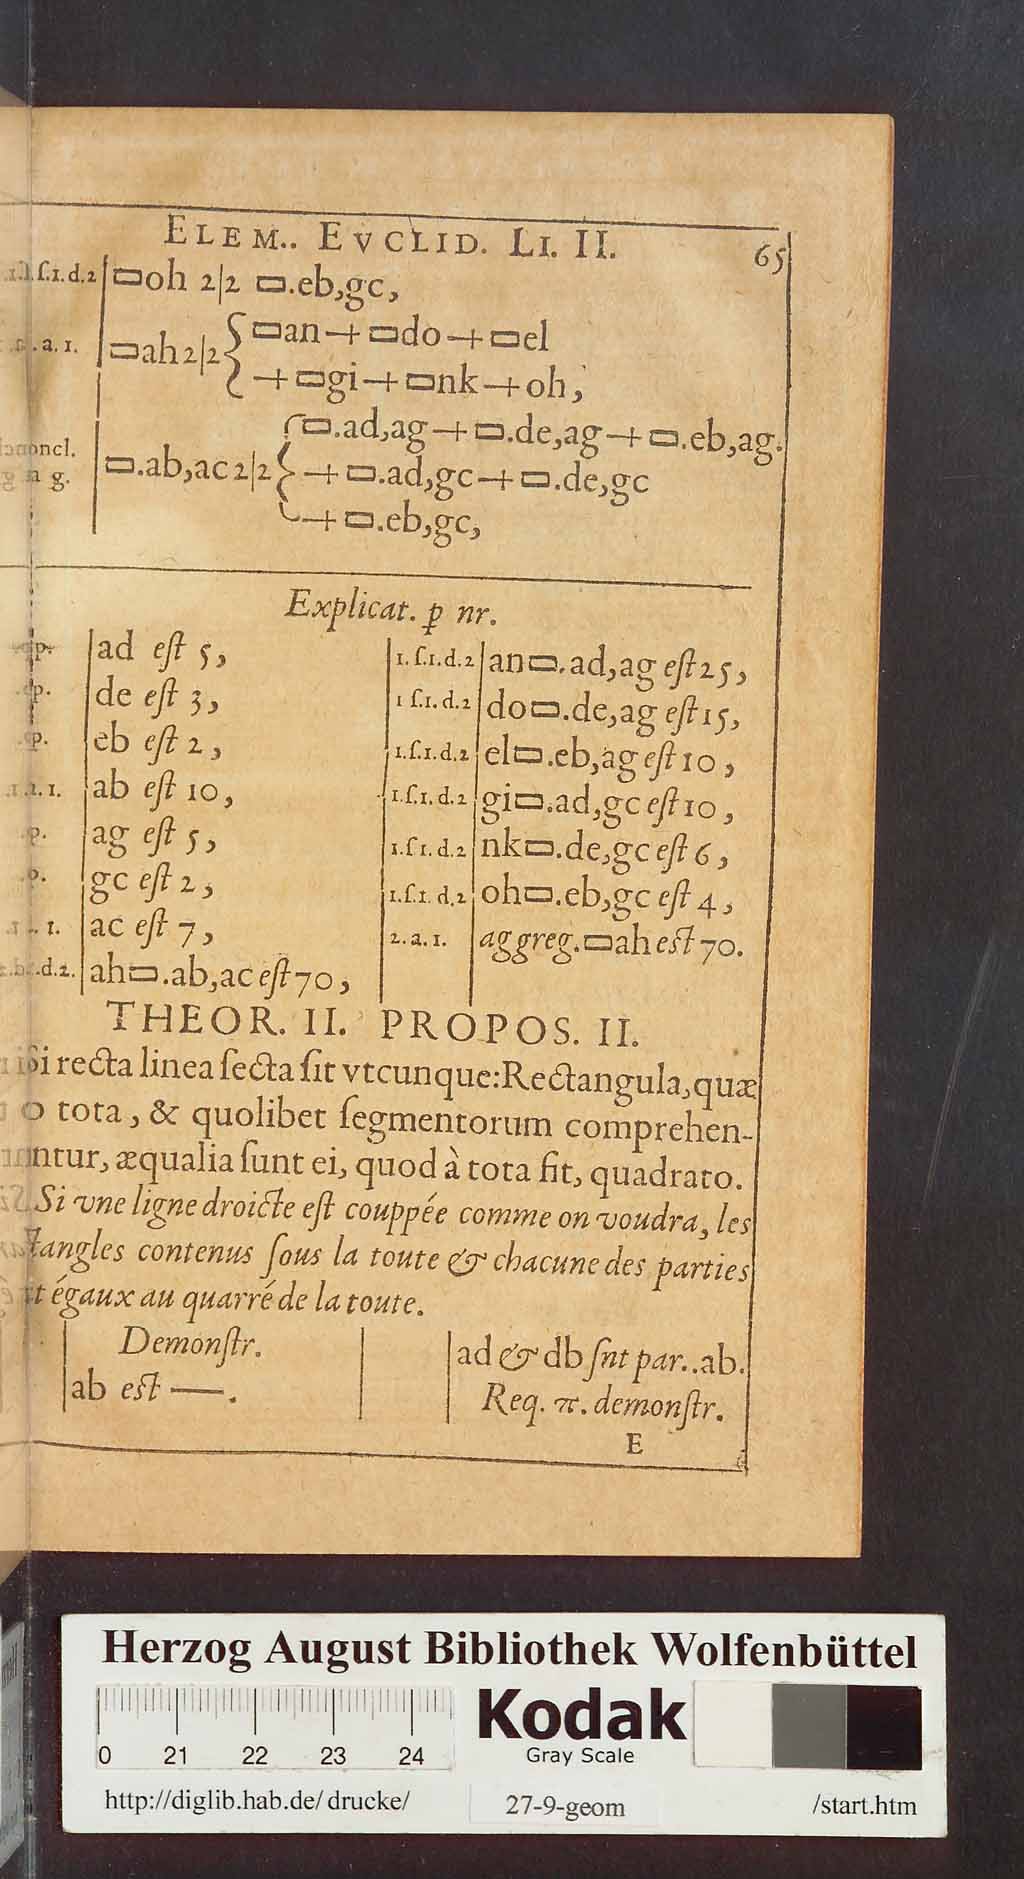 ELEM.. EVCLID. LI. II. 65
ſ.1.d.2 | ▭oh 2|2 ▭.eb,gc,
.a. 1. | ▭ah 2|2 { ▭an + ▭do + ▭el
+ ▭gi + ▭nk + oh,
concl. | ▭.ab,ac 2|2 { ▭.ad,ag + ▭.de,ag + ▭.eb,ag.
g. + ▭.ad,gc + ▭.de,gc
+ ▭.eb,gc,
Explicat. ꝑ nr.
ad eſt 5,
de eſt 3,
eb eſt 2,
ab eſt 10,
ag eſt 5,
gc eſt 2,
ac eſt 7,
.d.2. | ah▭.ab,ac eſt 70,
1.ſ.1.d.2 | an▭.ad,ag eſt 25,
1 ſ.1.d.2 | do▭.de,ag eſt 15,
1.ſ.1.d.2 | el▭.eb,ag eſt 10,
1.ſ.1.d.2 | gi▭.ad,gc eſt 10,
1.ſ 1.d.2 | nk▭.de,gc eſt 6,
1.ſ.1.d.2 | oh▭.eb,gc eſt 4,
2.a.1. | aggreg.▭ah est 70.
THEOR. II. PROPOS. II.
Si recta linea ſecta ſit vtcunque: Rectangula, quæ
tota, & quolibet ſegmentorum comprehen-
ntur, æqualia ſunt ei, quod à tota fit, quadrato.
Si vne ligne droicte eſt couppée comme on voudra, les
tangles contenus ſous la toute & chacune des parties
t égaux au quarré de la toute.
Demonſtr.
ab est —.
ad & db ſnt par..ab.
Req. π. demonſtr.
E
Herzog August Bibliothek Wolfenbüttel
0 21 22 23 24
Kodak
Gray Scale
http://diglib.hab.de/ drucke/ 27-9-geom /start.htm